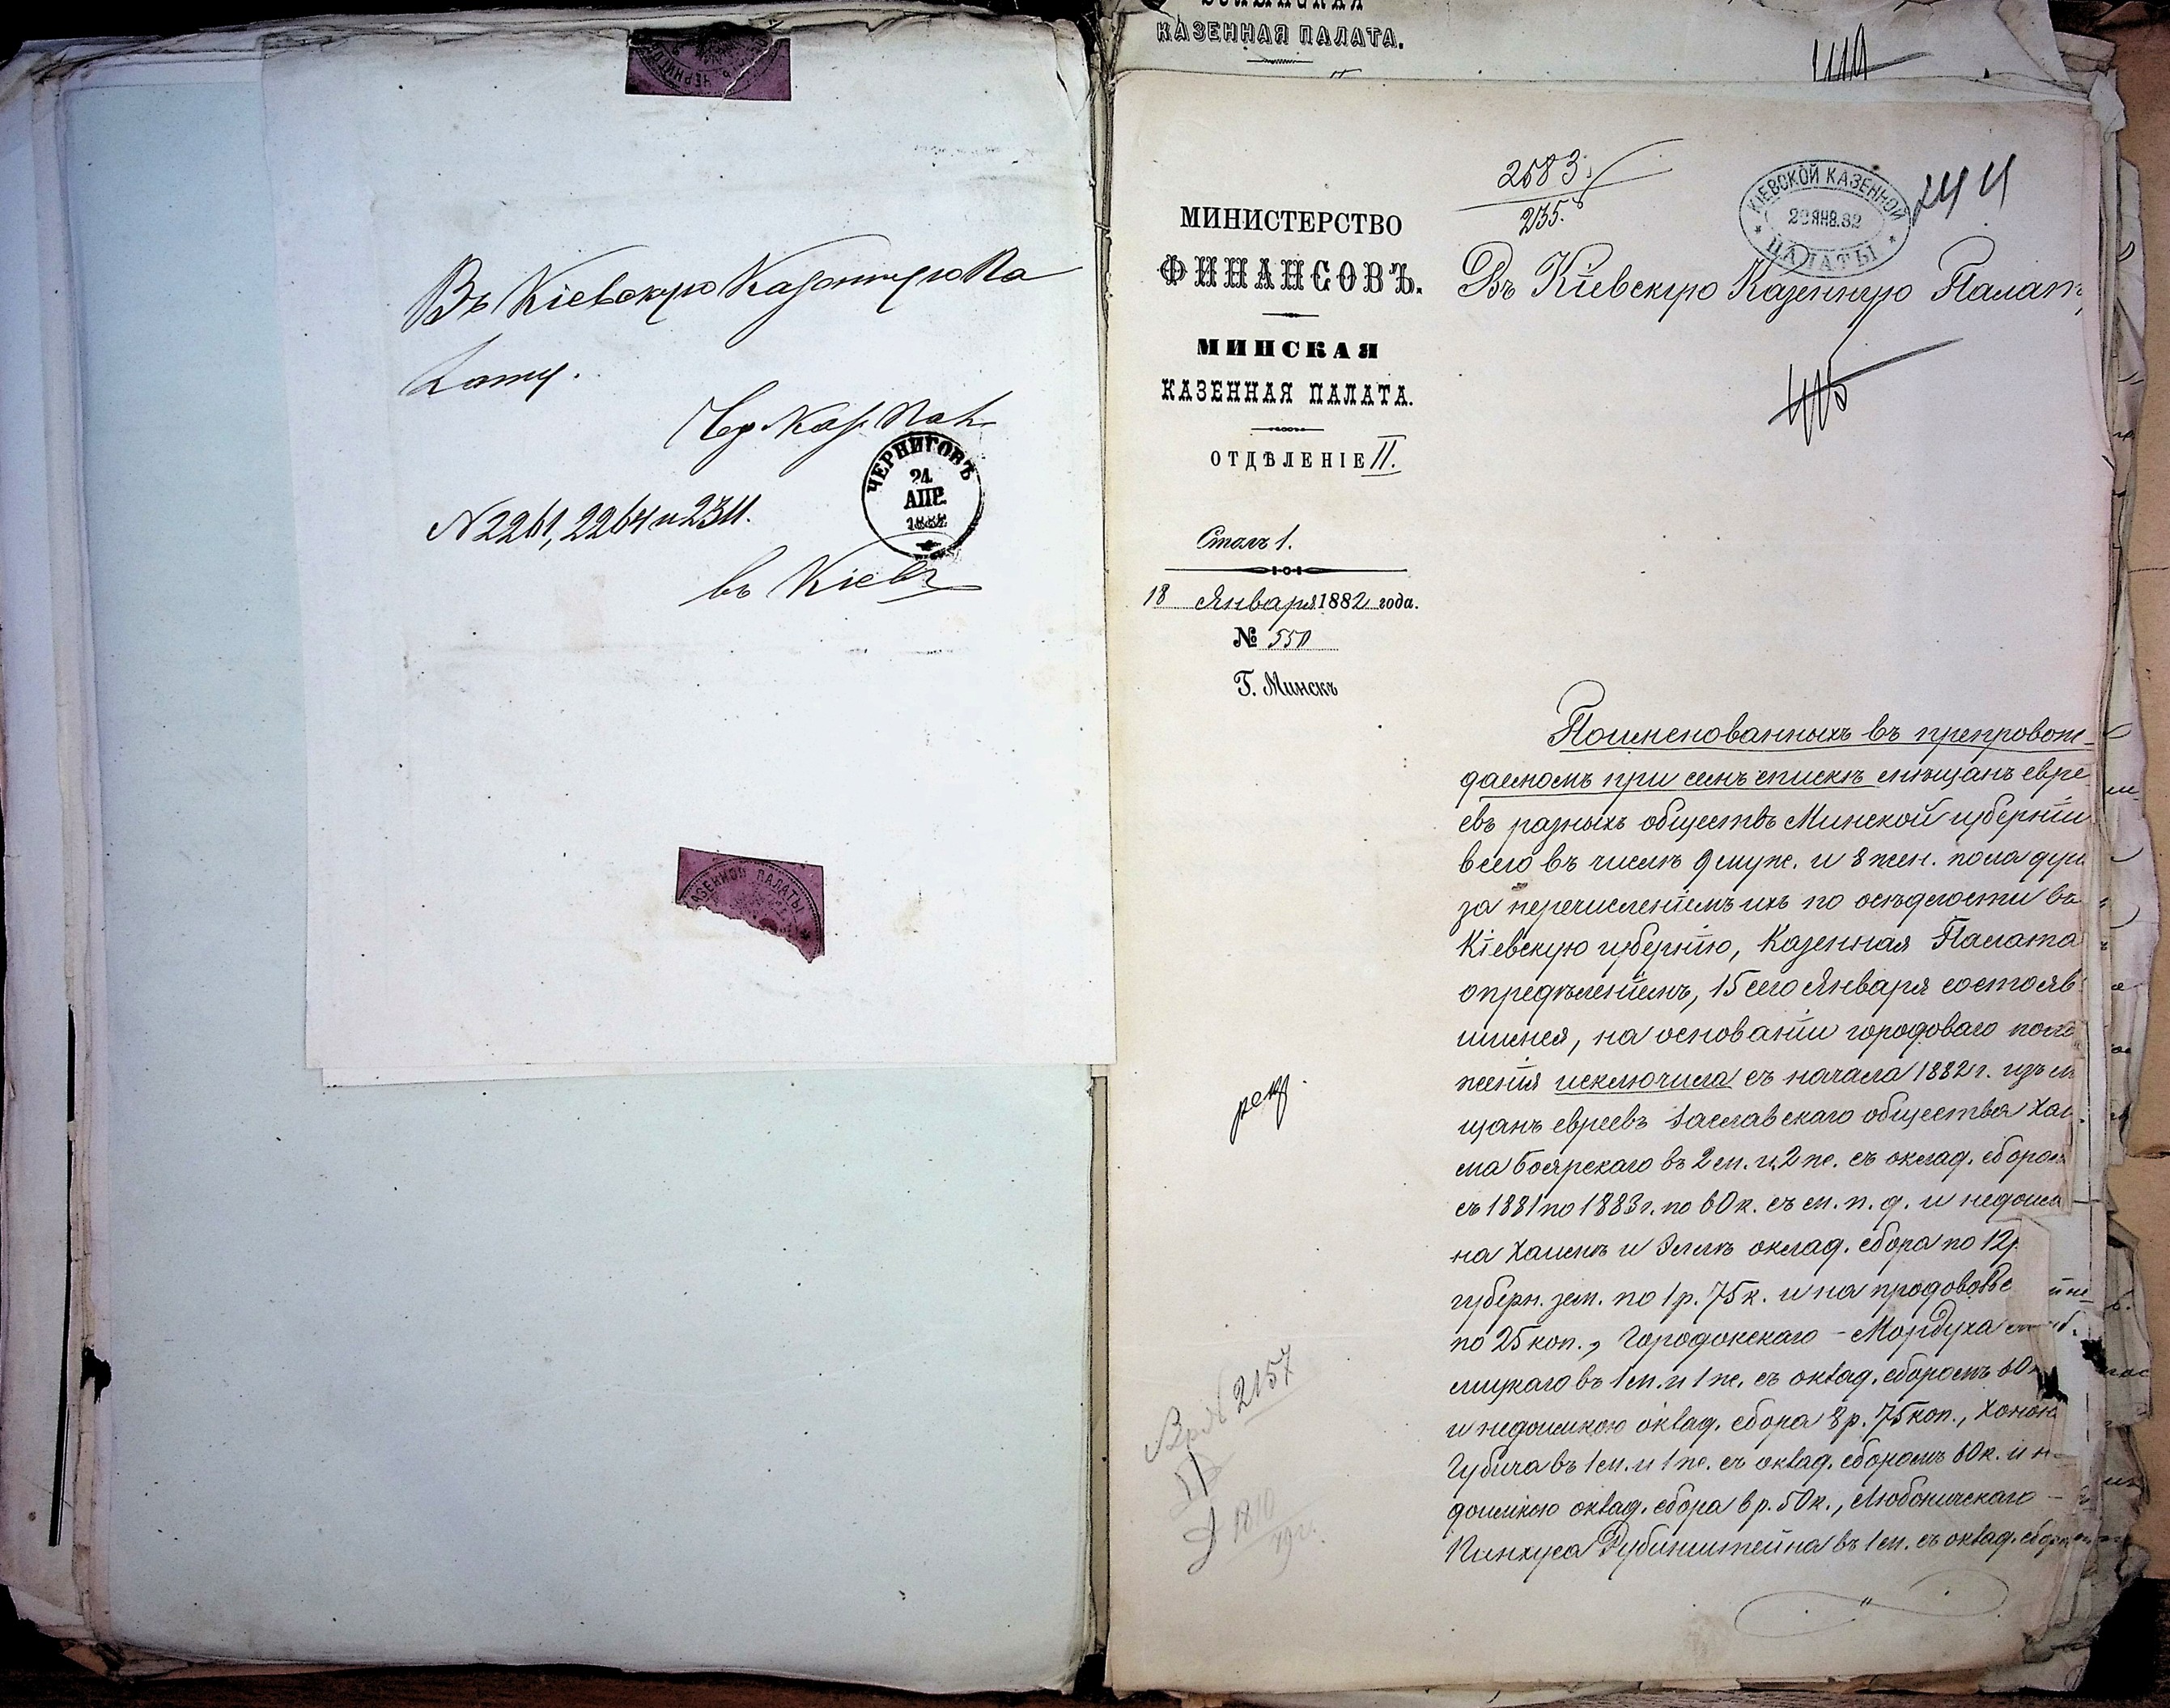 Въ Кіевскую Казенную Па
лату.
Чер. Каз. Пал.
ЧЕРНИГОВЪ
24
АПР.
1882
№ 2261, 2264 и 2311.
въ Кіевъ
КАЗЕННОЙ ПАЛАТЫ
КАЗЕННАЯ ПАЛАТА.
2583
235.
КІЕВСКОЙ КАЗЕННОЙ
20 ЯНВ. 82
ПАЛАТЫ
244
МИНИСТЕРСТВО
ФИНАНСОВЪ.
МИНСКАЯ
КАЗЕННАЯ ПАЛАТА.
ОТДѢЛЕНІЕ II.
Столъ 1.
18 Января 1882 года.
№ 550
Г. Минскъ
Въ Кіевскую Казенную Палат
405
Поименованныхъ въ препровож-
даемомъ при семъ спискѣ мѣщанъ евре
евъ разныхъ обществъ Минской губерніи
всего въ числѣ 9 муж. и 8 жен. пола душ
за перечисленіемъ ихъ по осѣдлости въ
Кіевскую губернію, Казенная Палата
опредѣленіемъ, 15 сего Января состояв
шимся, на основаніи городоваго поло
женія исключила съ начала 1882 г. изъ м
щанъ евреевъ Заславскаго общества Хаи
ма Боярскаго въ 2 м. и 2 ж. съ оклад. сбором
съ 1881 по 1883 г. по 60 к. съ м. п. д. и недоим
на Хаимѣ и Эллѣ оклад. сбора по 12 р
губерн. зем. по 1 р. 75 к. и на продовольс
по 25 коп., Городокскаго - Мордуха
въ 1 м. и 1 ж. съ оклад. сборомъ 60 к
и недоимкою оклад. сбора 8 р. 75 коп., Хонон
Губича въ 1 м. и 1 ж. съ оклад. сборомъ 60 к. и н-
доимкою оклад. сбора 6 р. 50 к., Любоничскаго -
Пинхуса Рубинштейна въ 1 м. съ оклад. сбор
№ 2157
1810